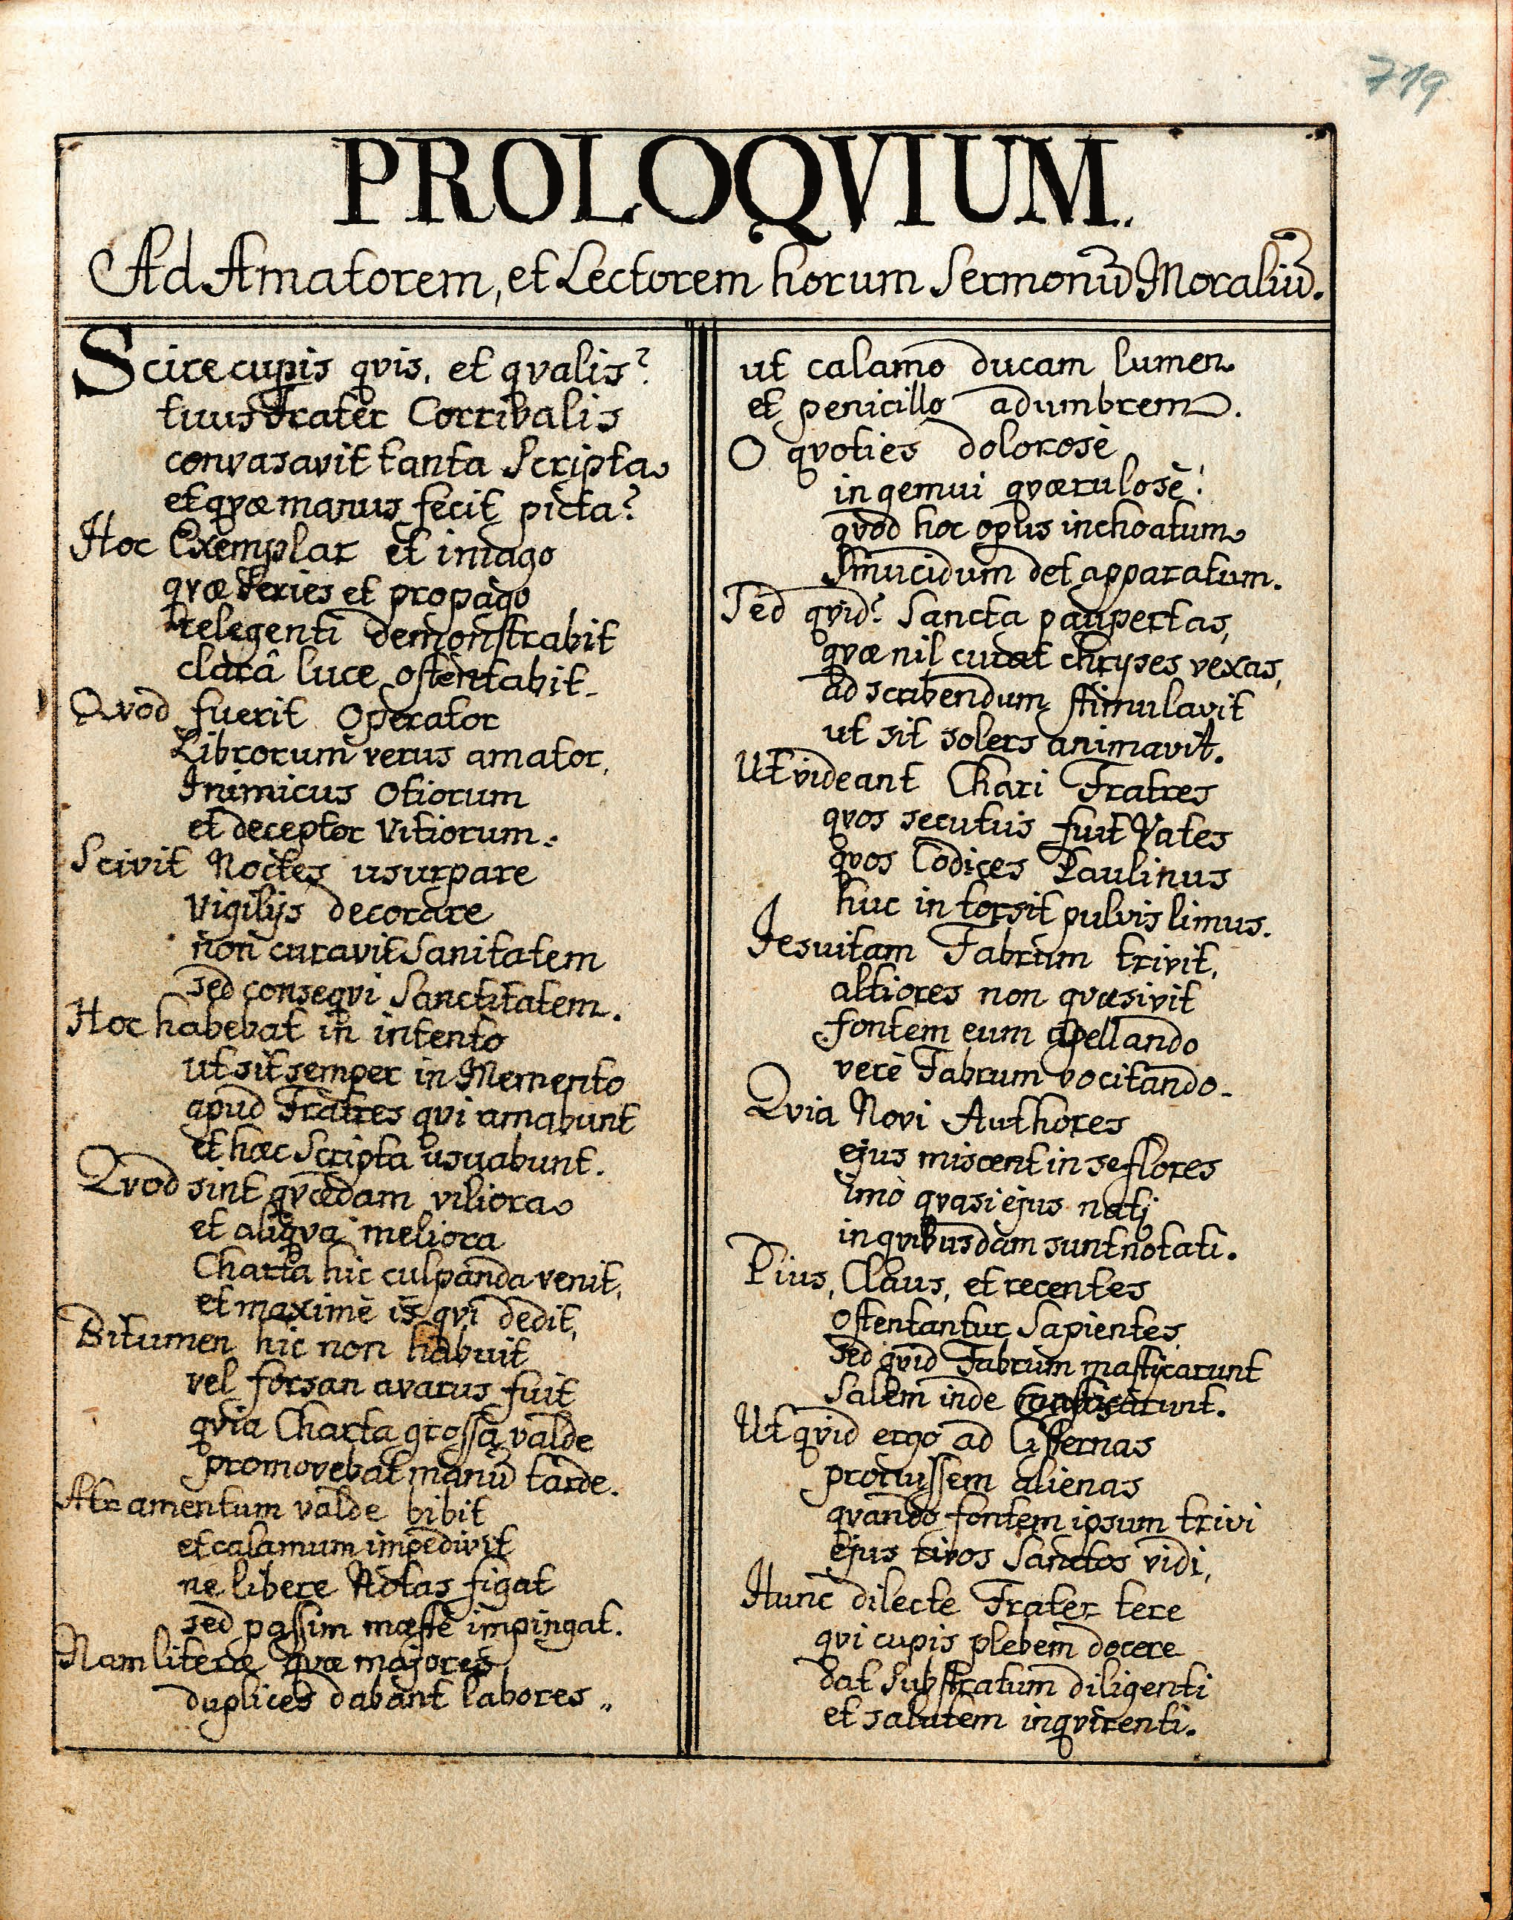 719
PROLOQVIUM.
Ad Amatorem, et Lectorem horum Sermonũ Moraliũ.
Scire cupis qvis, et qvalis?
tuus Frater Corrivalis
convasavit tanta Scripta
et qvæ manus fecit picta?
Hoc Exemplar et imago
qvæ Series et propago
relegenti demonstrabit
clarâ luce ostentabit.
Qvod fuerit Operator
Librorum verus amator,
Inimicus Otiorum
et deceptor Vitiorum.
Scivit Noctes usurpare
Vigilijs decorare
non curavit Sanitatem
sed conseqvi Sanctitatem.
Hoc habebat in intento
ut sit semper in Memento
apud Fratres qvi amabunt
et hæc Scripta usuabunt.
Qvod sint qvædam viliora
et aliqva meliora
Charta hic culpanda venit,
et maximè is qvi dedit,
Bitumen hic non habuit
vel forsan avarus fuit
qvia Charta grossa valde
promovebat manũ tarde.
Atramentum valde bibit
et calamum impedivit
ne libere Notas figat
sed passim mæstè impingat.
Nam literæ qvæ majores
duplices dabant labores„
ut calamo ducam lumen
et penicillo adumbrem.
O qvoties dolorosè
ingemui qværulosè!
qvod hoc opus inchoatum
Smucidum det apparatum.
Sed qvid? Sancta paupertas,
qvæ nil curat chryses vexas,
ad scribendum stimulavit
ut sit solers animavit.
Ut videant Chari Fratres
qvos secutus fuit Vates
qvos Codices Paulinus
huc intorsit pulvis limus.
Jesuitam Fabrum trivit,
altiores non qvæsivit
fontem eum apellando
verè Fabrum vocitando.
Qvia Novi Authores
ejus miscent in se flores
imò qvasi ejus natj
in qvibusdam sunt notati.
Pius, Claus, et recentes
ostentantur Sapientes
sed qvid Fabrum mastjcarunt
Salem inde
Ut qvid ergo ad Cisternas
procussem alienas
qvando fontem ipsum trivi
ejus rivos Sanctos vidi,
Hunc dilecte Frater tere
qvi cupis plebem docere
dat Substratum diligenti
et salutem inqvirenti.